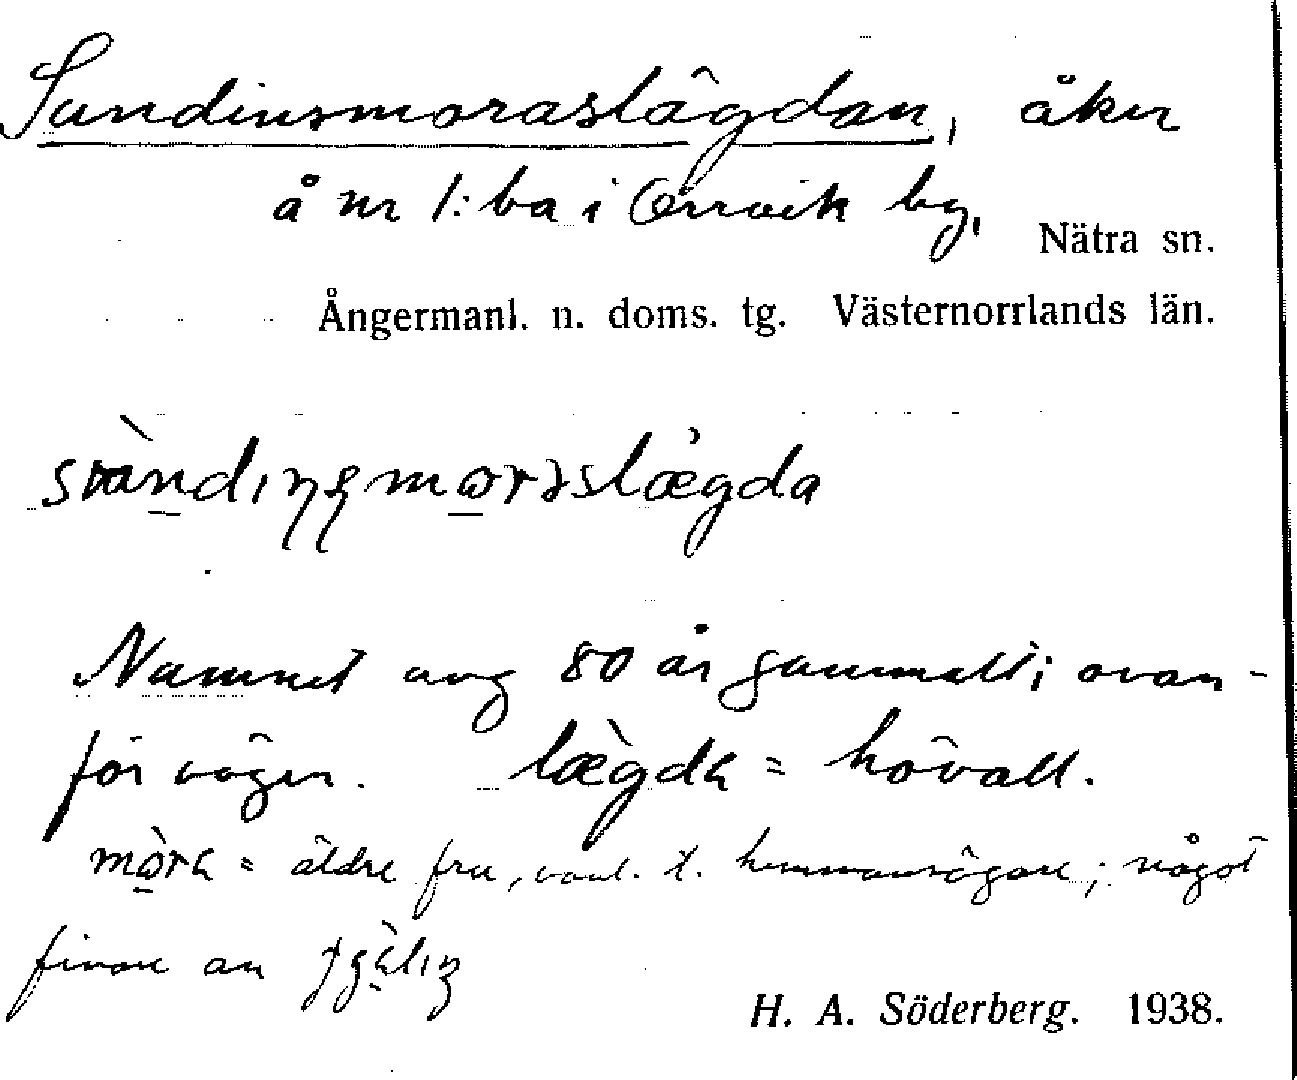 Sundinsmoraslägdan, åker
å nr 1:ba i Örrvik by,
Nätra sn.
Ångermanl. n. doms. tg. Västernorrlands län.
Namnet ung 80 år gammalt; ovan-
för vägen. lægda = hövall.
mora = äldre fru, vanl. t. hemmansägare; något
finare än
H. A. Söderberg. 1938.